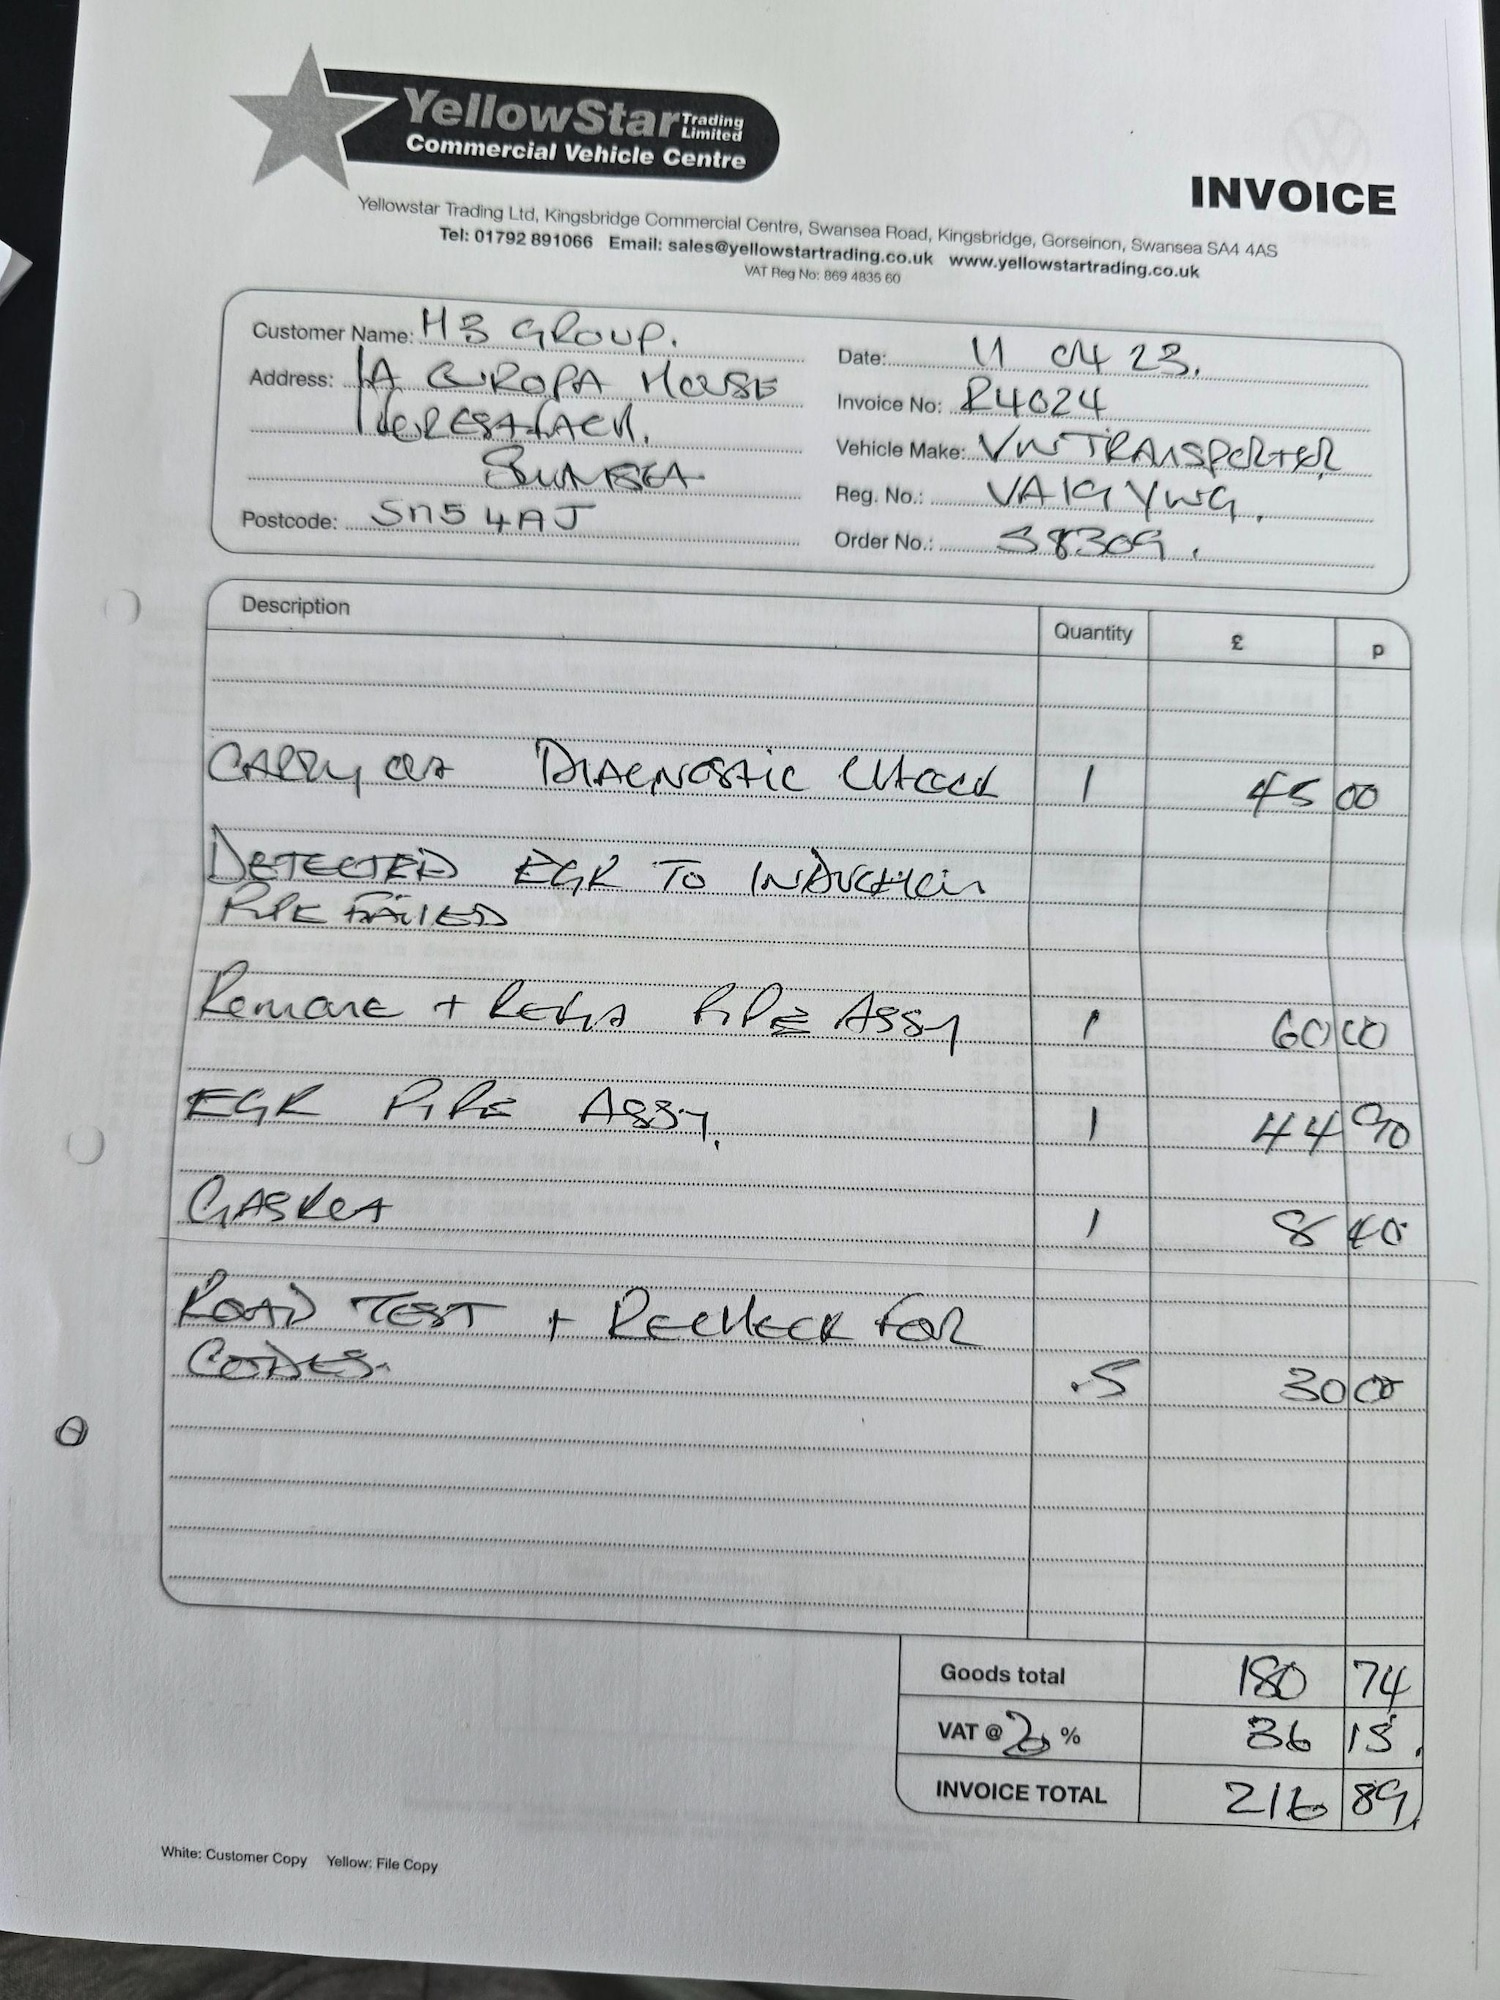 YellowStar Trading Limited
Commercial Vehicle Centre
INVOICE
Yellowstar Trading Ltd, Kingsbridge Commercial Centre, Swansea Road, Kingsbridge, Gorseinon, Swansea SA4 4AS
Tel: 01792 891066 Email: sales@yellowstartrading.co.uk www.yellowstartrading.co.uk
VAT Reg No: 869 4835 60
Customer Name: H B GROUP.
Address: 1A EUROPA HOUSE
SWANSEA
Postcode: SA5 4AJ
Date: 11 04 23.
Invoice No: R4024
Vehicle Make: VW TRANSPORTER
Reg. No.: VA19 YWG.
Order No.: S8309.
Description Quantity £ p
CARRY OUT DIAGNOSTIC CHECK 1 45 00
DETECTED EGR TO INDUCTION
PIPE FAILED
REMOVE + PIPE ASSY 1 60 00
EGR PIPE ASSY. 1 44 90
GASKET 1 8 40
ROAD TEST + RECHECK FOR
CODES. .5 30 00
Goods total 180 74
VAT @ 20 % 36 15.
INVOICE TOTAL 216 89
White: Customer Copy Yellow: File Copy